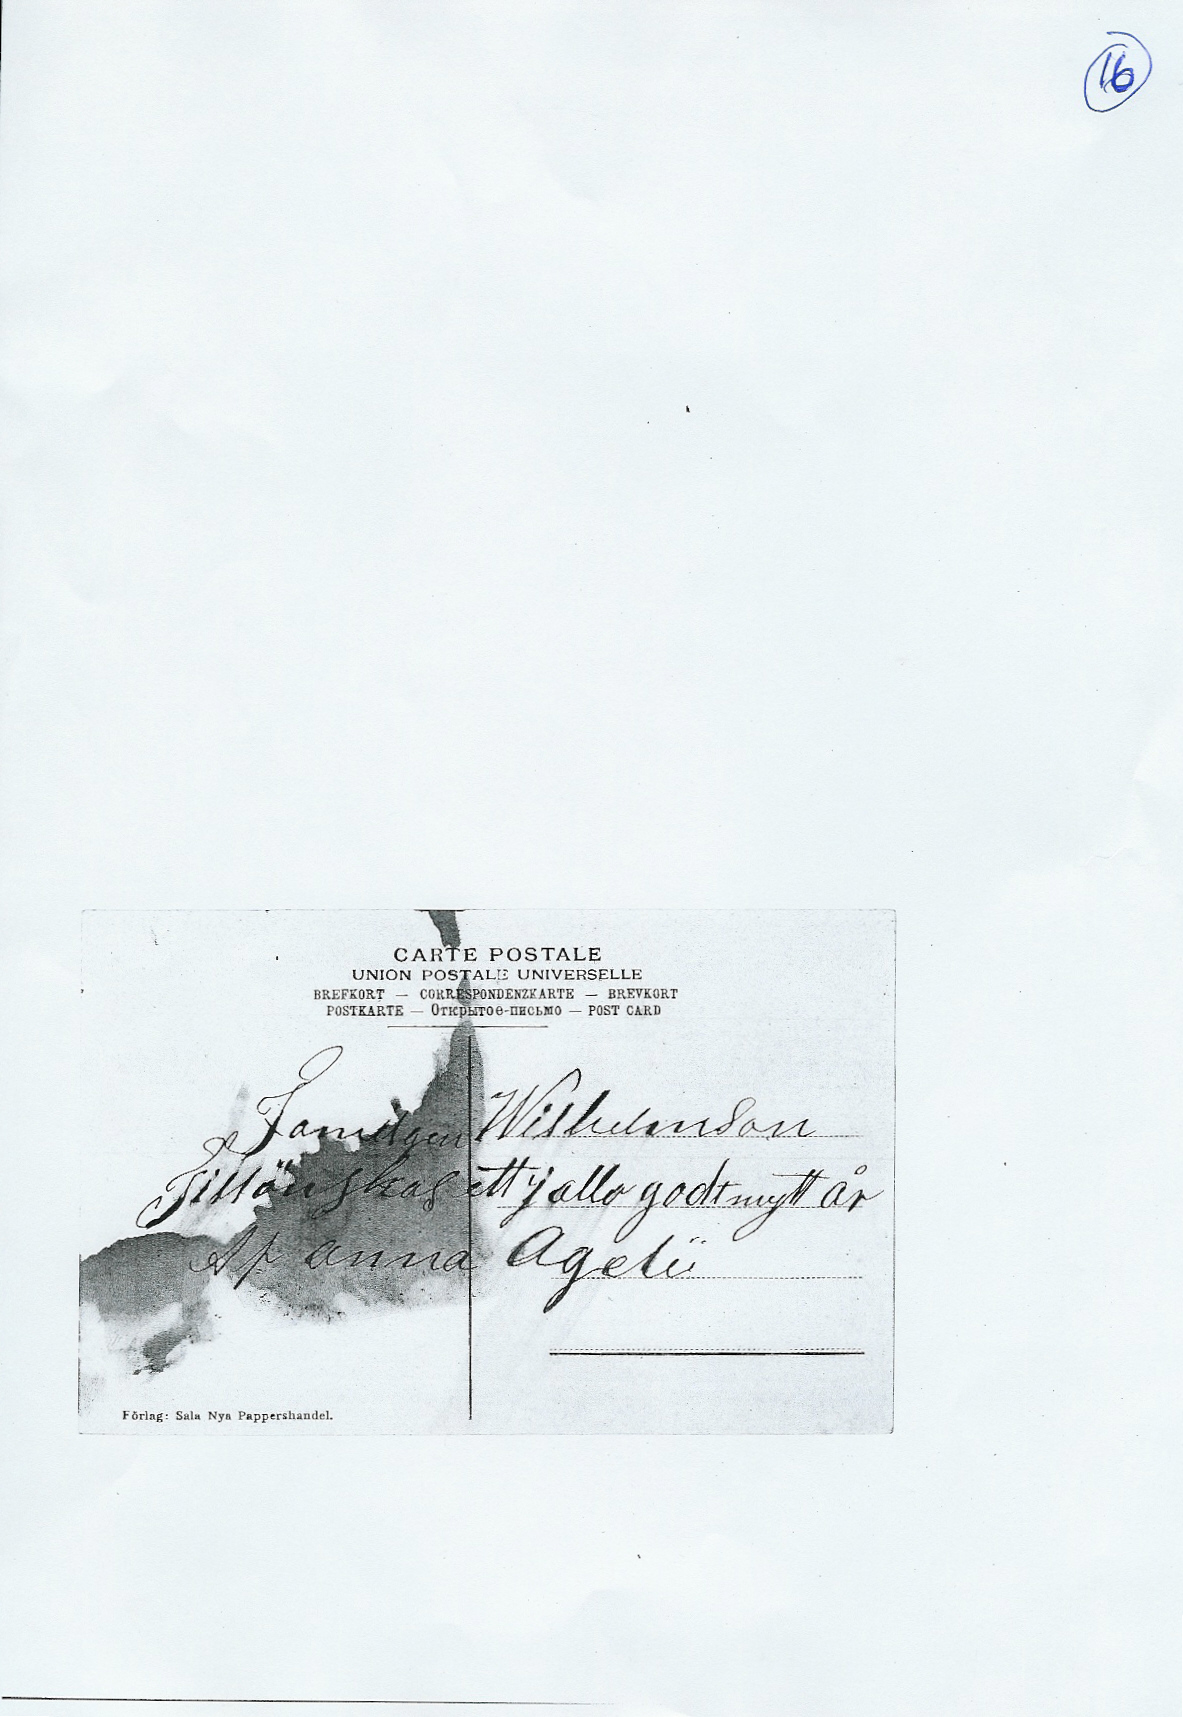 16
CARTE POSTALE
UNION POSTALE UNIVERSELLE
BREFKORT — CORRESPONDENZKARTE — BREVKORT
POSTKARTE — Открытое-письмо — POST CARD
Familgen Wilhelmson
Tillönskas ett i allo godt nytt år
Af anna Agelii
Förlag: Sala Nya Pappershandel.